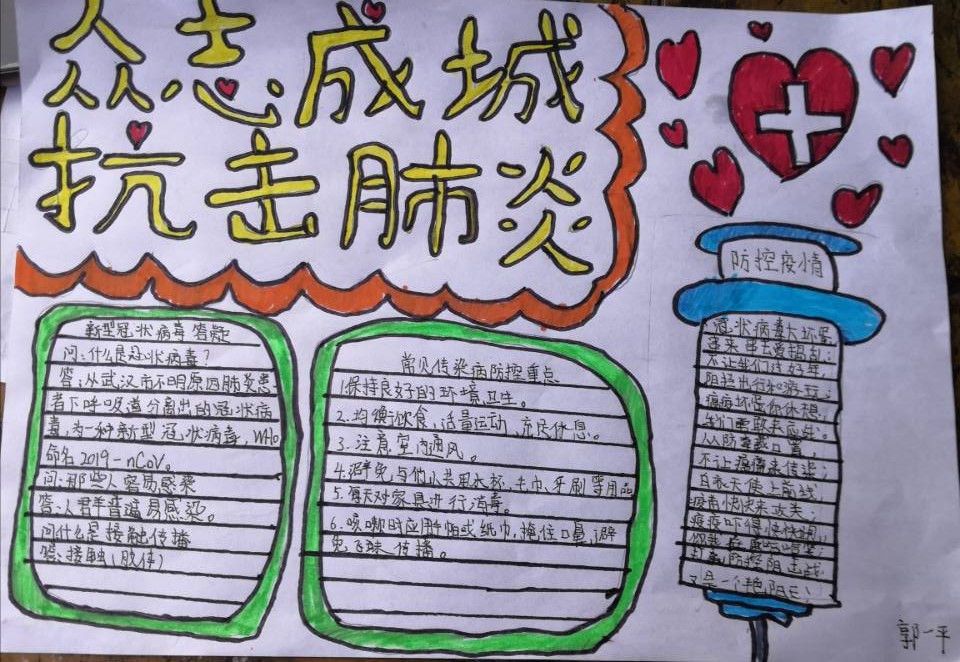 众志成城
抗击肺炎
新型冠状病毒答疑
问:什么是冠状病毒?
答:从武汉市不明原因肺炎患
者下呼吸道分离出的冠状病
毒,为一种新型冠状病毒,WHO
命名2019-nCoV。
问:那些人容易感染
答:人群普遍易感染。
问什么是接触传播
答:接触(肢体)
常见传染病防控重点
1.保持良好的环境卫生。
2.均衡饮食,适量运动,充足休息。
3.注意室内通风。
4.避免与他人共用水杯,毛巾,牙刷等用品
5.每天对家具进行消毒。
6.咳嗽时应用手帕或纸巾,掩住口鼻,避
免飞沫传播。
防控疫情
冠状病毒大坏蛋
出去爱捣乱;
不让我们过好年,
阻挡出行和游玩;
病坏蛋你休想,
我们勇敢来应战。
从防
不让病毒来传染;
白衣天使上前线
快快来
打赢防控阻击战
又是一个艳阳天!
郭一平